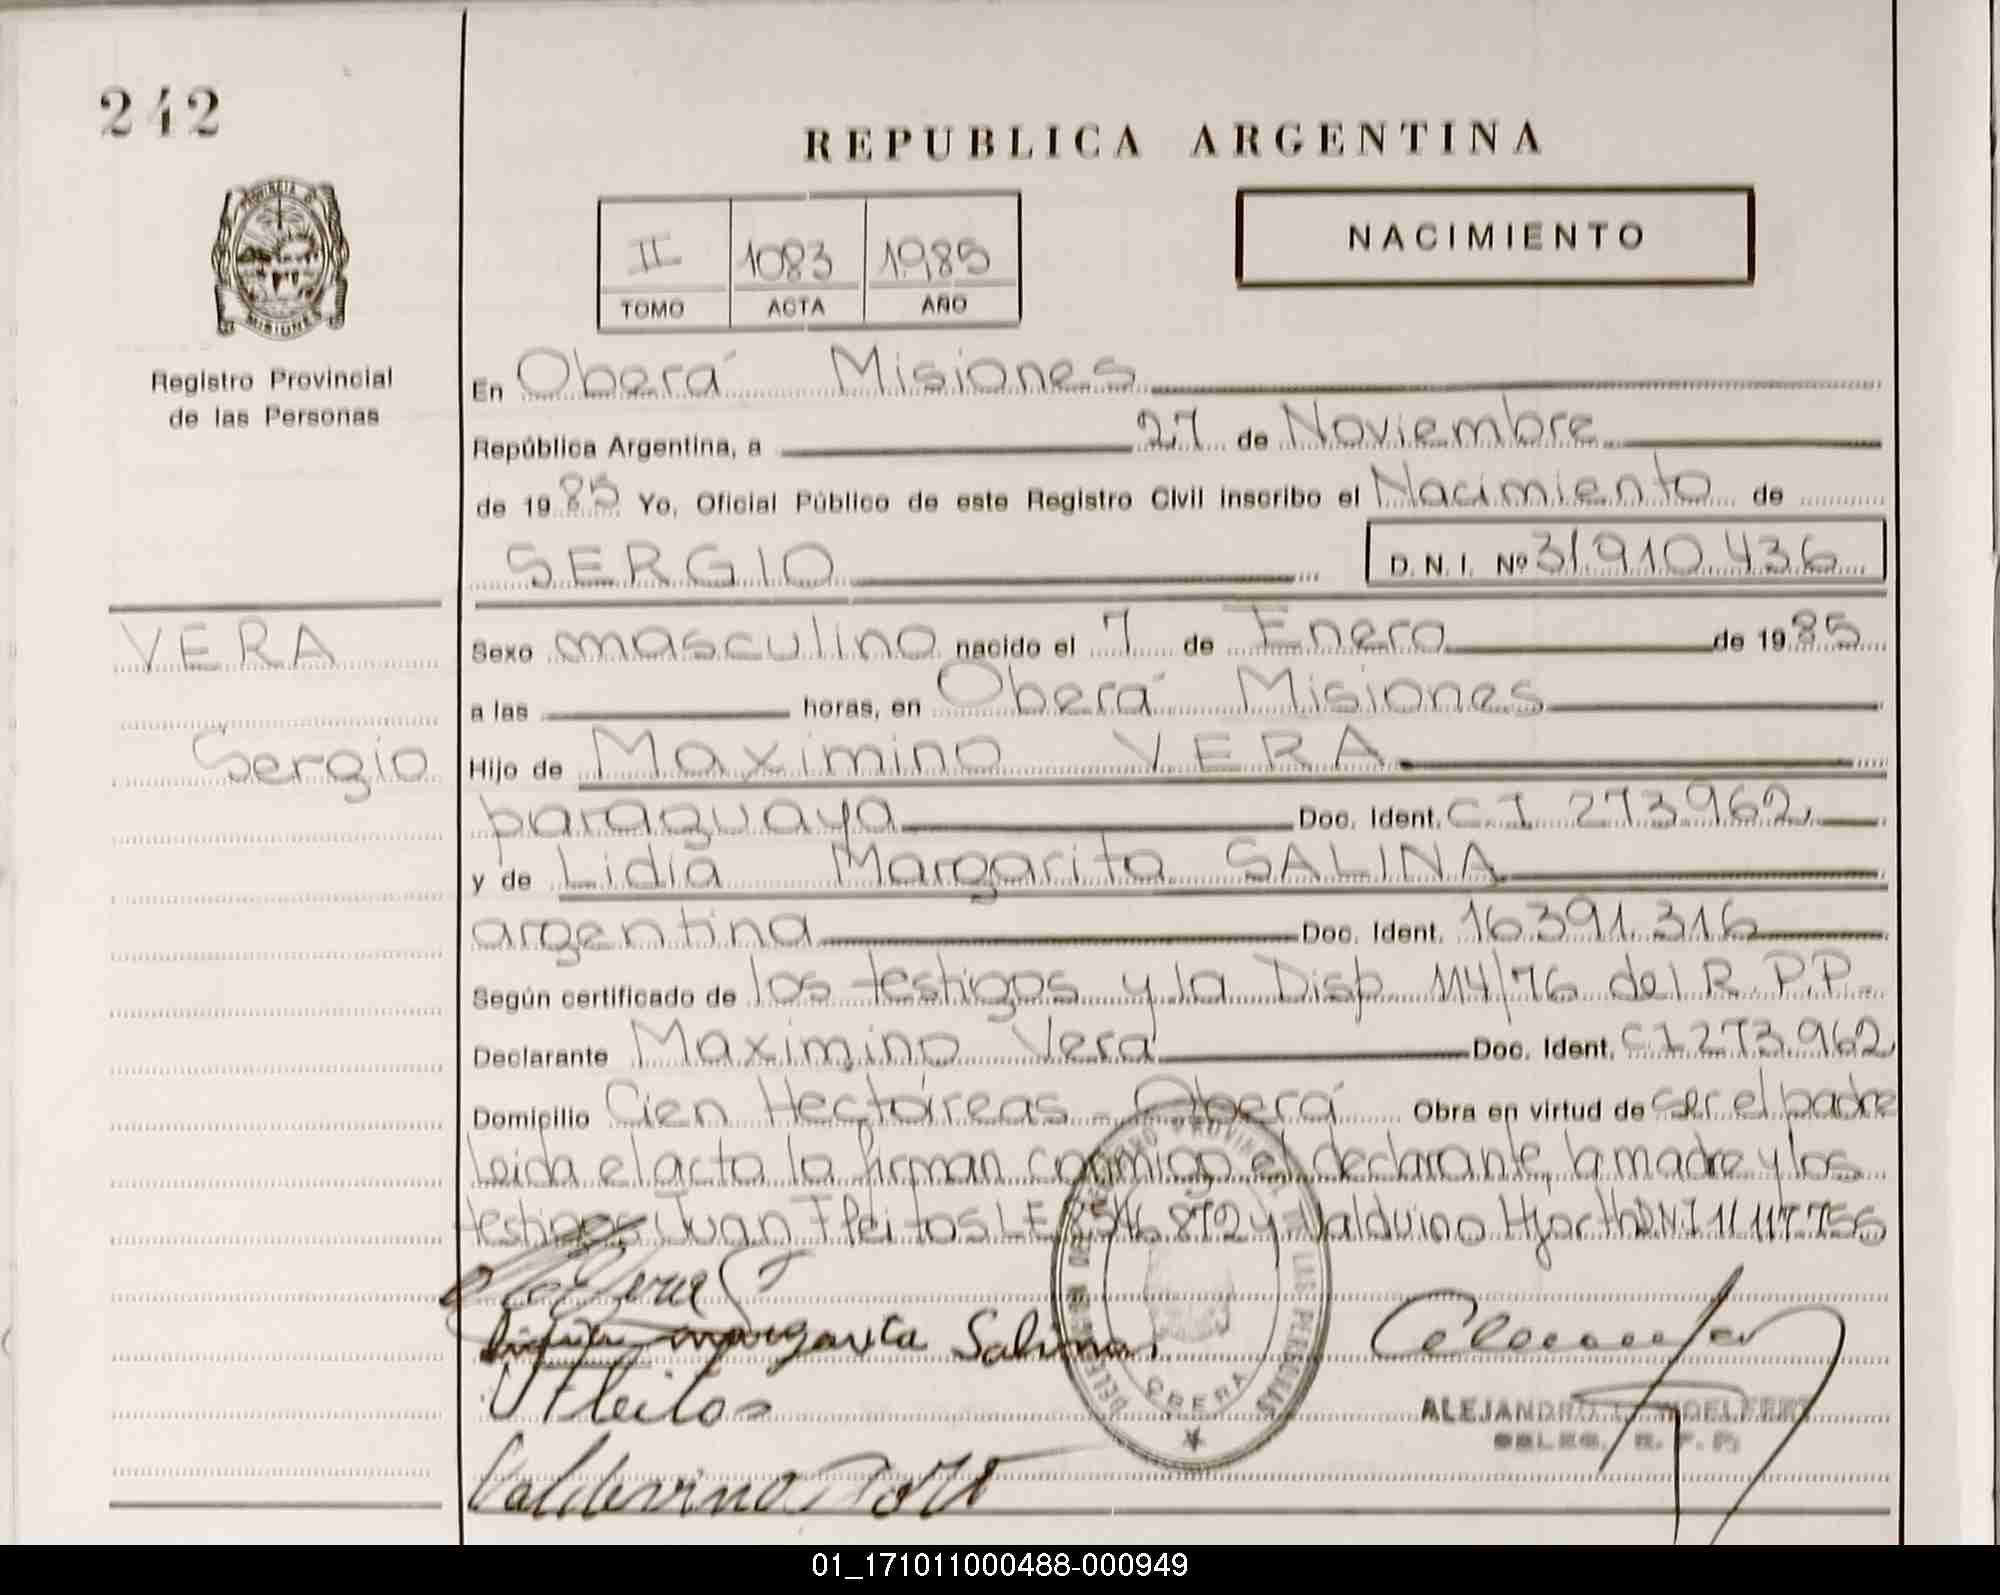 242
REPUBLICA ARGENTINA
PROVINCIA
MISIONES
Registro Provincial
de las Personas
II 1083 1985
TOMO ACTA AÑO
NACIMIENTO
En Oberá Misiones
República Argentina, a 27 de Noviembre
de 1985 Yo, Oficial Público de este Registro Civil inscribo el Nacimiento de
SERGIO D. N. I. Nº 31.910.436
VERA
Sergio
Sexo masculino nacido el 7 de Enero de 1985
a las horas, en Oberá Misiones
Hijo de Maximino VERA
paraguaya Doc. Ident. C I 273.962
y de Lidia Margarita SALINA
argentina Doc. Ident. 16.391.316
Según certificado de los testigos y la Disp 114/76 del R.P.P.
Declarante Maximino Vera Doc. Ident. C I 273.962
Domicilio Cien Hectáreas - Oberá Obra en virtud de ser el padre
Leida el acta la firman conmigo el declarante, la madre y los
testigos Juan Fleitos L E 8.546.872 y Valduino Hjorth D.N.I 11.117.755
Margarita Salina
Fleitos
Valdevino
OBERA
ALEJANDRO
R. P. P.
01_171011000488-000949